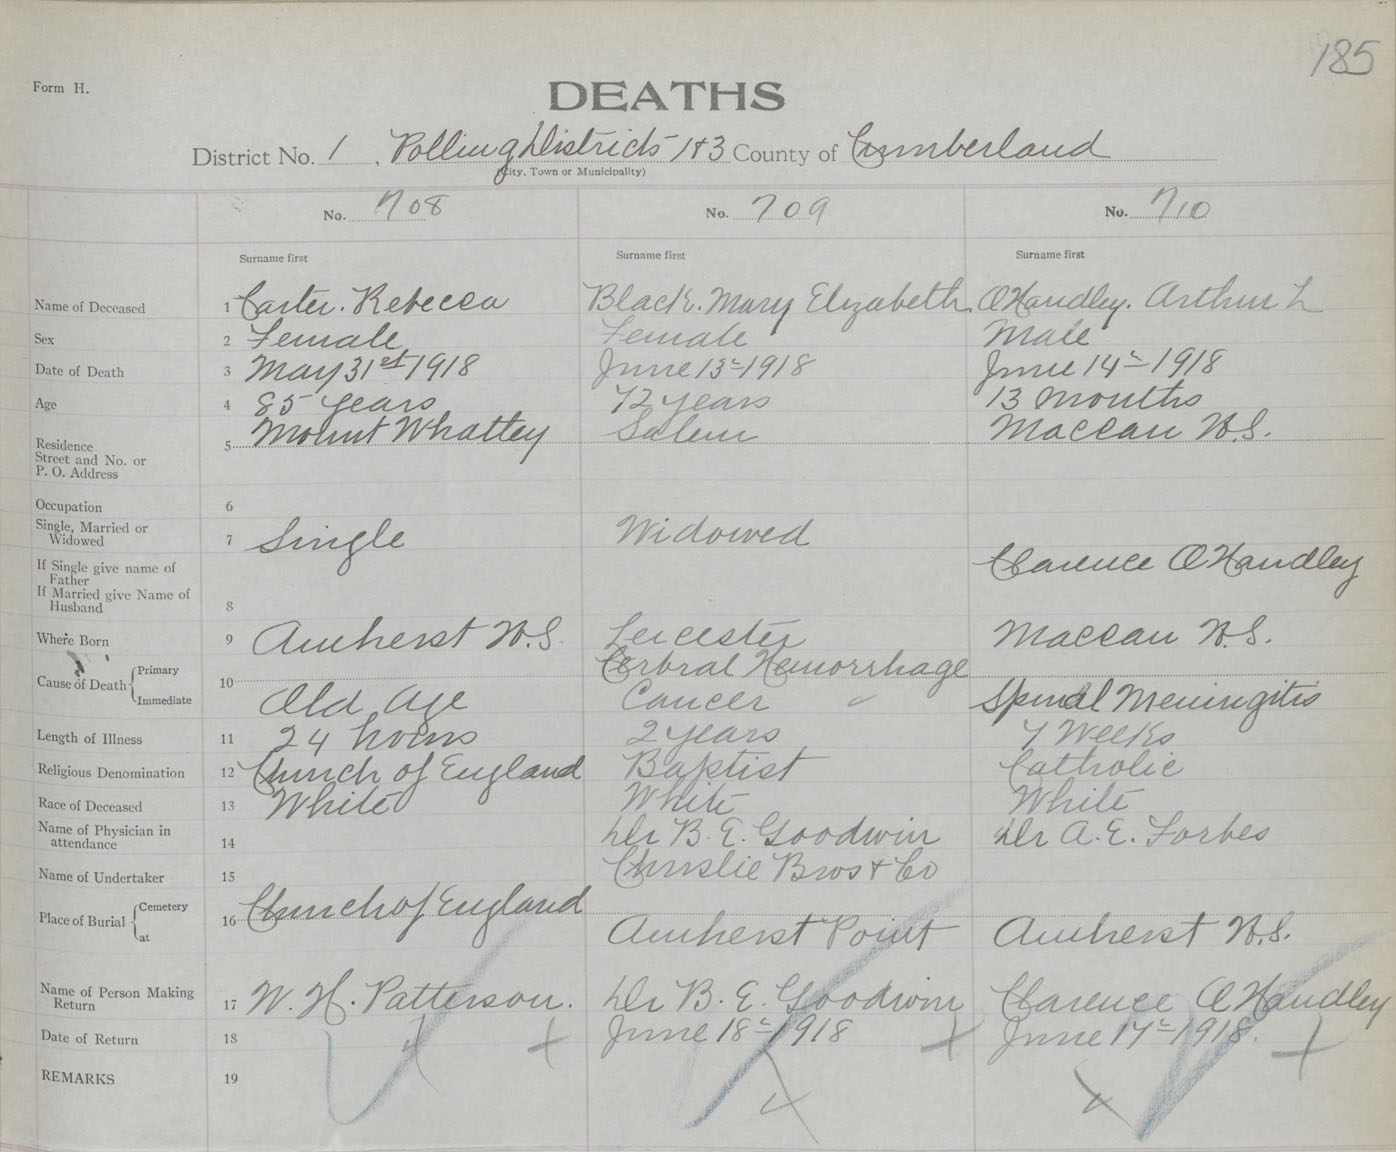 185
Form H.
DEATHS
District No. 1, Polling Districts 1+3 County of Cumberland
(City, Town or Municipality)
No. 708 No. 709 No. 710
Surname first Surname first Surname first
Name of Deceased 1 Carter. Rebecca Black. Mary Elizabeth O'Handley. Arthur L
Sex 2 Female Female Male
Date of Death 3 May 31st 1918 June 13th 1918 June 14th 1918
Age 4 85 years 72 years 13 Months
Residence
Street and No. or
P. O. Address 5 Mount Whatley Salem Maccan N.S.
Occupation 6
Single, Married or
Widowed 7 Single Widowed
If Single give name of
Father
If Married give Name of
Husband 8 Clarence O'Handley
Where Born 9 Amherst N.S. Leicester Maccan N.S.
Cause of Death Primary 10 Cerbral Hemorrhage
Immediate Old Age Cancer Spinal Meningitis
Length of Illness 11 24 hours 2 years 7 Weeks
Religious Denomination 12 Church of England Baptist Catholic
Race of Deceased 13 White White White
Name of Physician in
attendance 14 Dr B. E. Goodwin Dr A. E. Forbes
Name of Undertaker 15 Christie Bros + Co
Place of Burial Cemetery 16 Church of England
at Amherst Point Amherst N.S.
Name of Person Making
Return 17 W. H. Patterson. Dr B. E. Goodwin Clarence O'Handley
Date of Return 18 June 18th 1918 June 17th 1918.
REMARKS 19